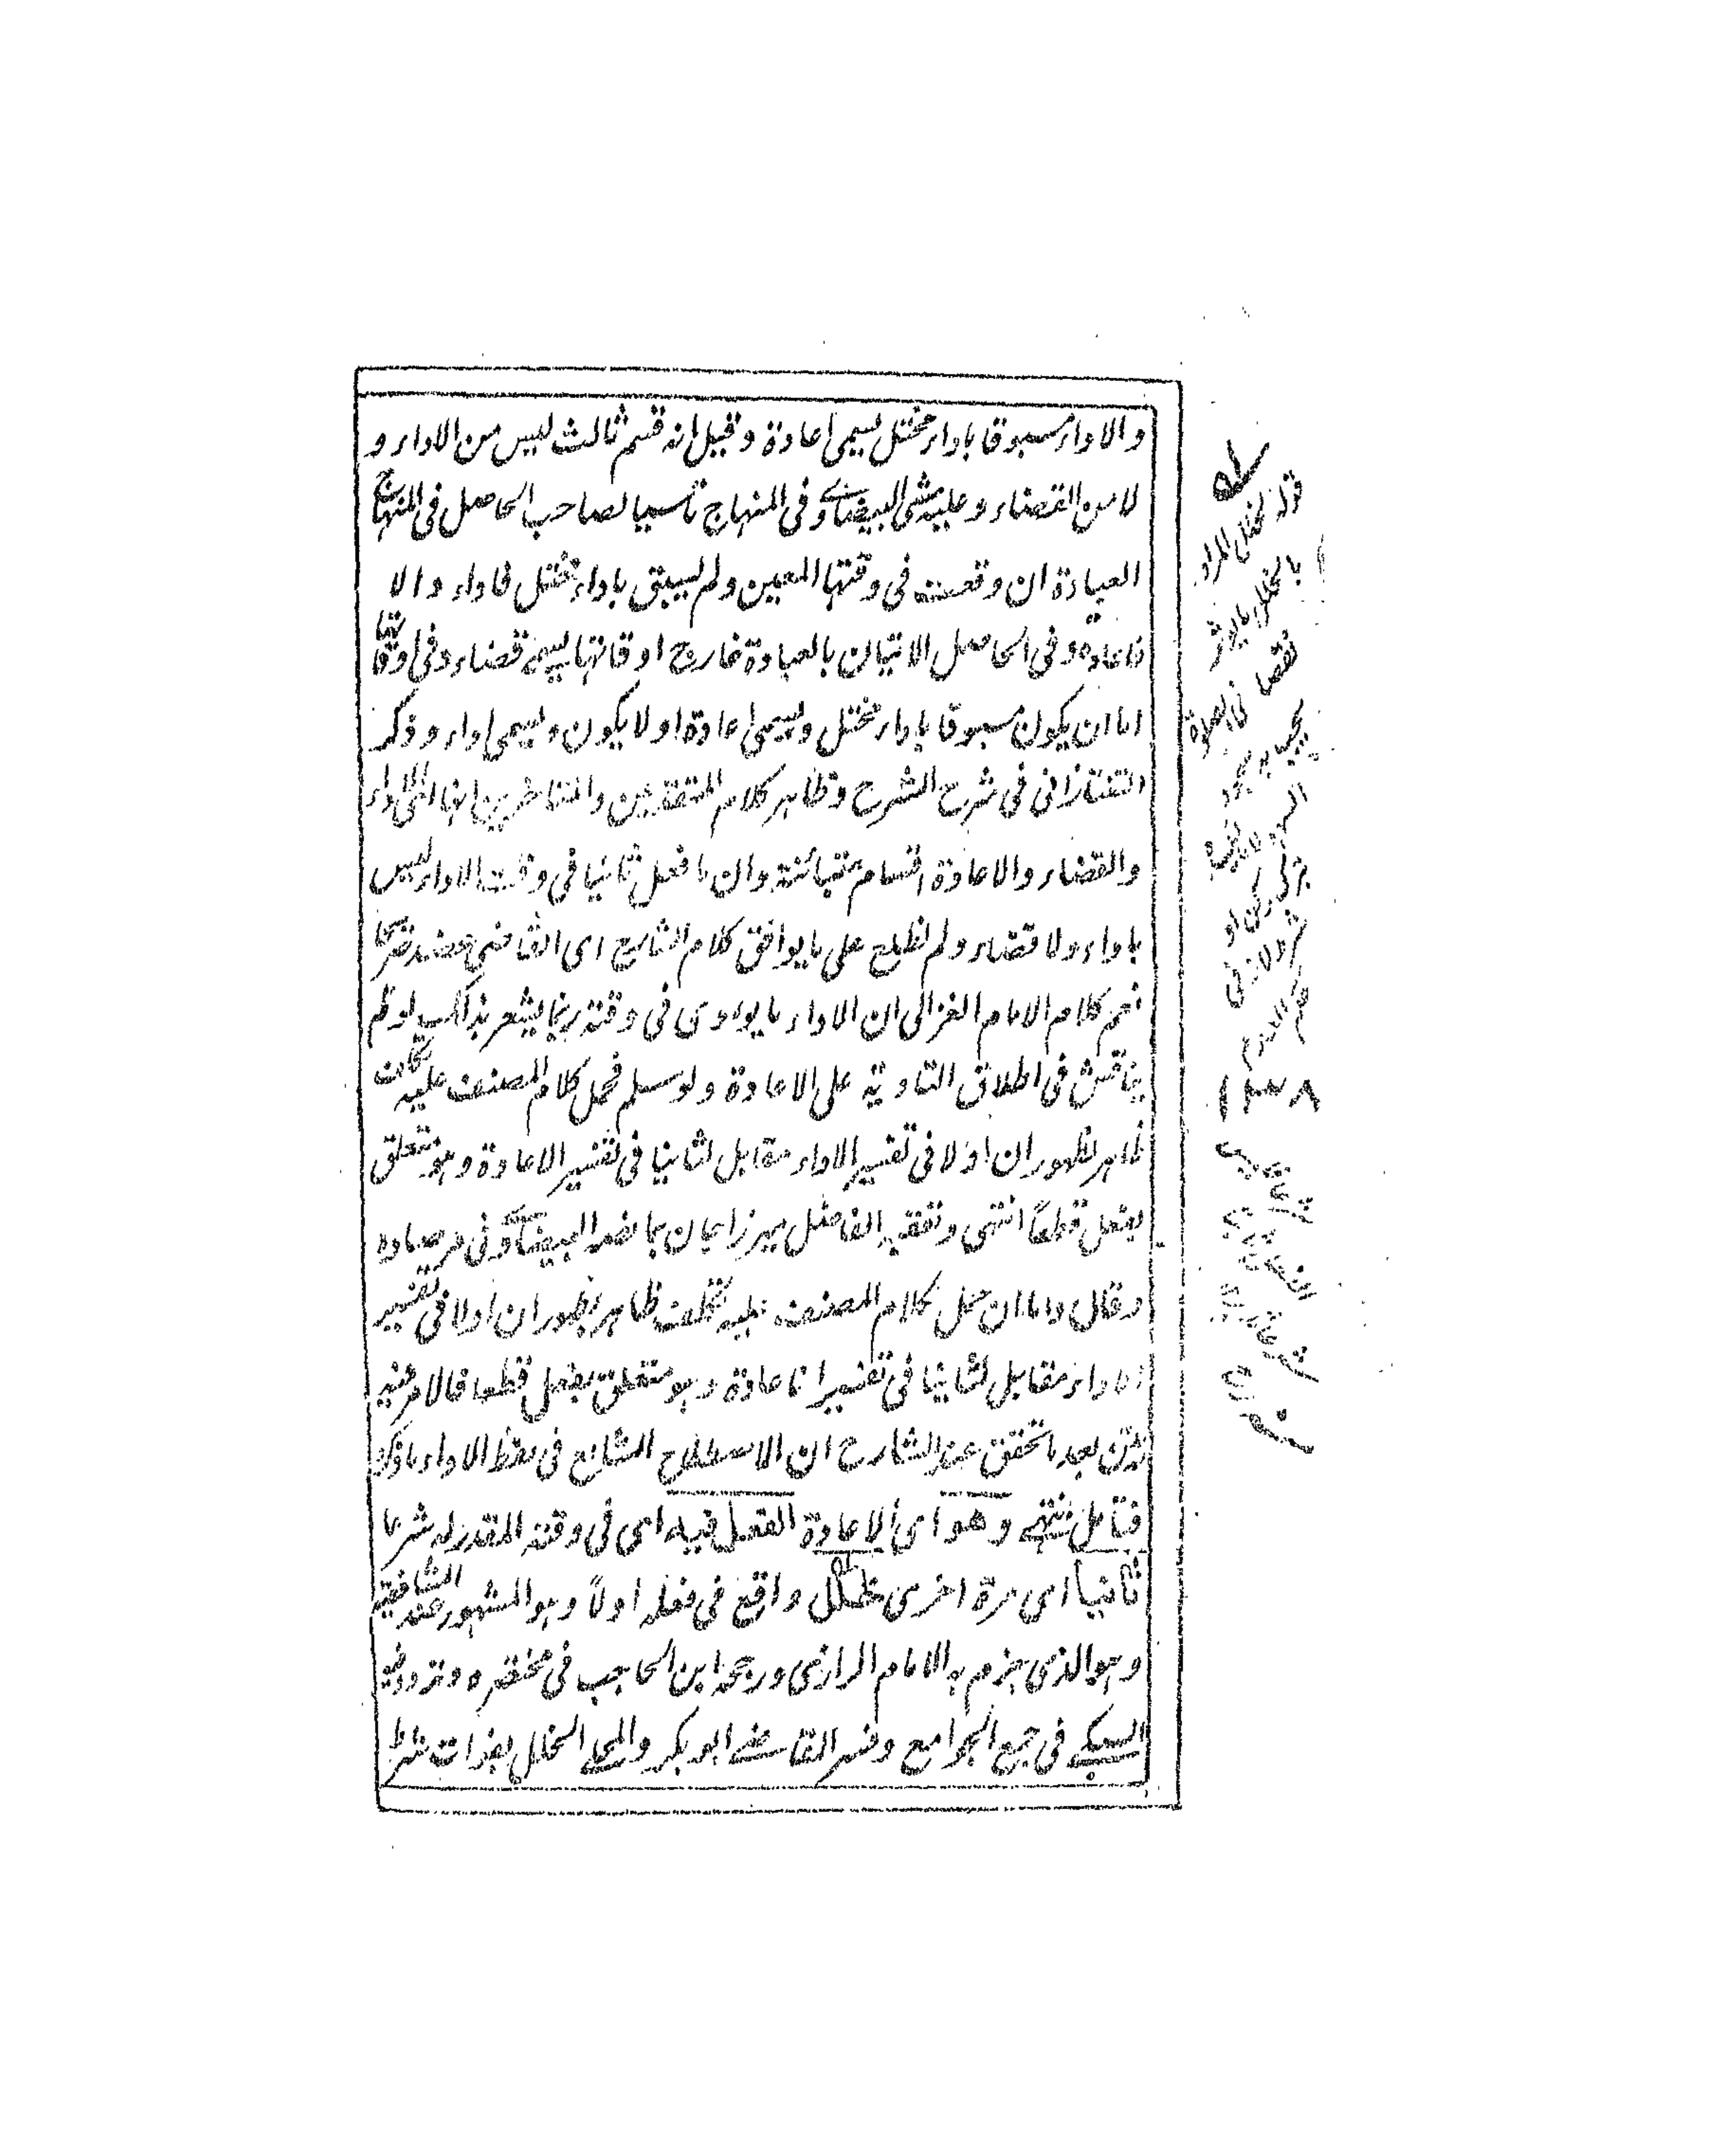 والاداء مسبوقا باداء مختل ليسمى اعادة وقيل انه قسم ثالث ليس من الاداء و
لا من القضاء وعليه مشى البيضاوى فى المنهاج تأسيا لصاحب الحاصل فى المنهاج
العبادة ان وقعت فى وقتها المعين ولم ليسبق باداء مختل فاداء والا
فاعادة وفى الحاصل الاتيان بالعبادة خارج اوقاتها يسمى قضاء وفى اوقاتها
اما ان يكون مسبوقا باداء مختل ويسمى اعادة اولا يكون ويسمى اداء وذكر
التفتازانى فى شرح الشرح وظاهر كلام المتقدمين والمتاخرين انها اى الاداء
والقضاء والاعادة اقسام متبائنة وان ما فعل ثانيا فى وقت الاداء ليس
باداء ولا قضاء ولم نطلع على ما يوافق كلام الشارح اى القاضى عضد صريحا
نعم كلام الامام الغزالى ان الاداء ما يودى فى وقته ربما يشعر بذلك لو لم
يناقش فى اطلاق التادية على الاعادة ولو سلم فحمل كلام المصنف عليه تكلف
ظاهر لظهور ان اولا فى تفسير الاداء مقابل لثانيا فى تفسير الاعادة وهو متعلق
بفعل قطعًا انتهى وتعقبه الفاضل ميرزا جان بما نصه البيضاوى فى مرصاده
وقال واما ان حمل كلام المصنف عليه تكلف ظاهر لظهور ان اولا فى تفسير
الاداء مقابل لثانيا فى تفسير الاعادة وهو متعلق بفعل قطعا فالامر فيه
بعد ما تحقق عند الشارح ان الاصطلاح الشايع فى لفظ الاداء ما ذكره
فتامل انتهى وهو اى الاعادة الفعل فيه اى فى وقته المقدر له شرعا
ثانيا اى مرة اخرى لخلل واقع فى فعله اولًا وهو المشهور عند الشافعية
وهو الذى جزم به الامام الرازى ورجحه ابن الحاجب فى مختصره وتردد فيه
السبكى فى جمع الجوامع وفسر القاضى ابو بكر والمحلى الخلل بفوات شرط
قوله لخلل المراد
بالخلل ما يوثر
نقصا فى الصلوة
يجب به سجود
السهو
بترك ركن او
١٢